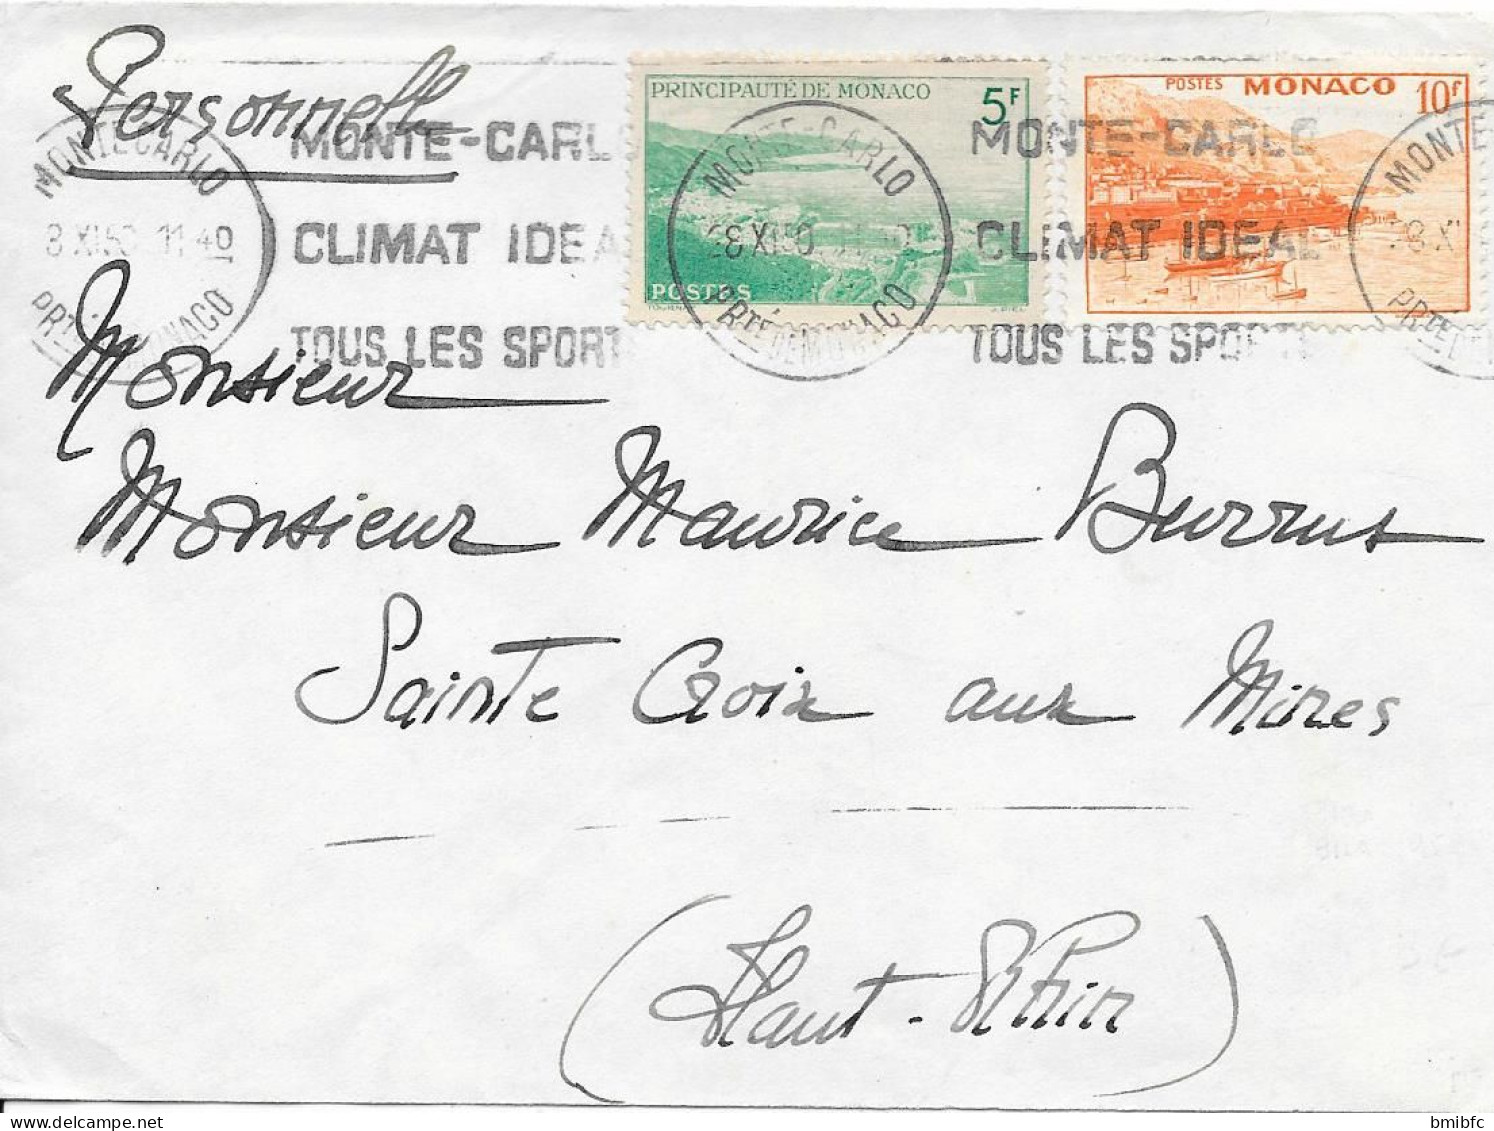 Personnelle
PRINCIPAUTÉ DE MONACO 5F
POSTES
POSTES MONACO 10F
MONTE-CARLO
8 XI 50 11 40
PRTÉ DE MONACO
MONTE-CARL
CLIMAT IDEA
TOUS LES SPORT
MONTE-CARLO
8 XI 50
PRTÉ DE MONACO
MONTE-CARLO
CLIMAT IDEAL
TOUS LES SPORTS
MONTE
8 XI
PRTÉ DE
Monsieur
Monsieur Maurice Burrus
Sainte Croix aux Mines
(Haut-Rhin)
bmibfc